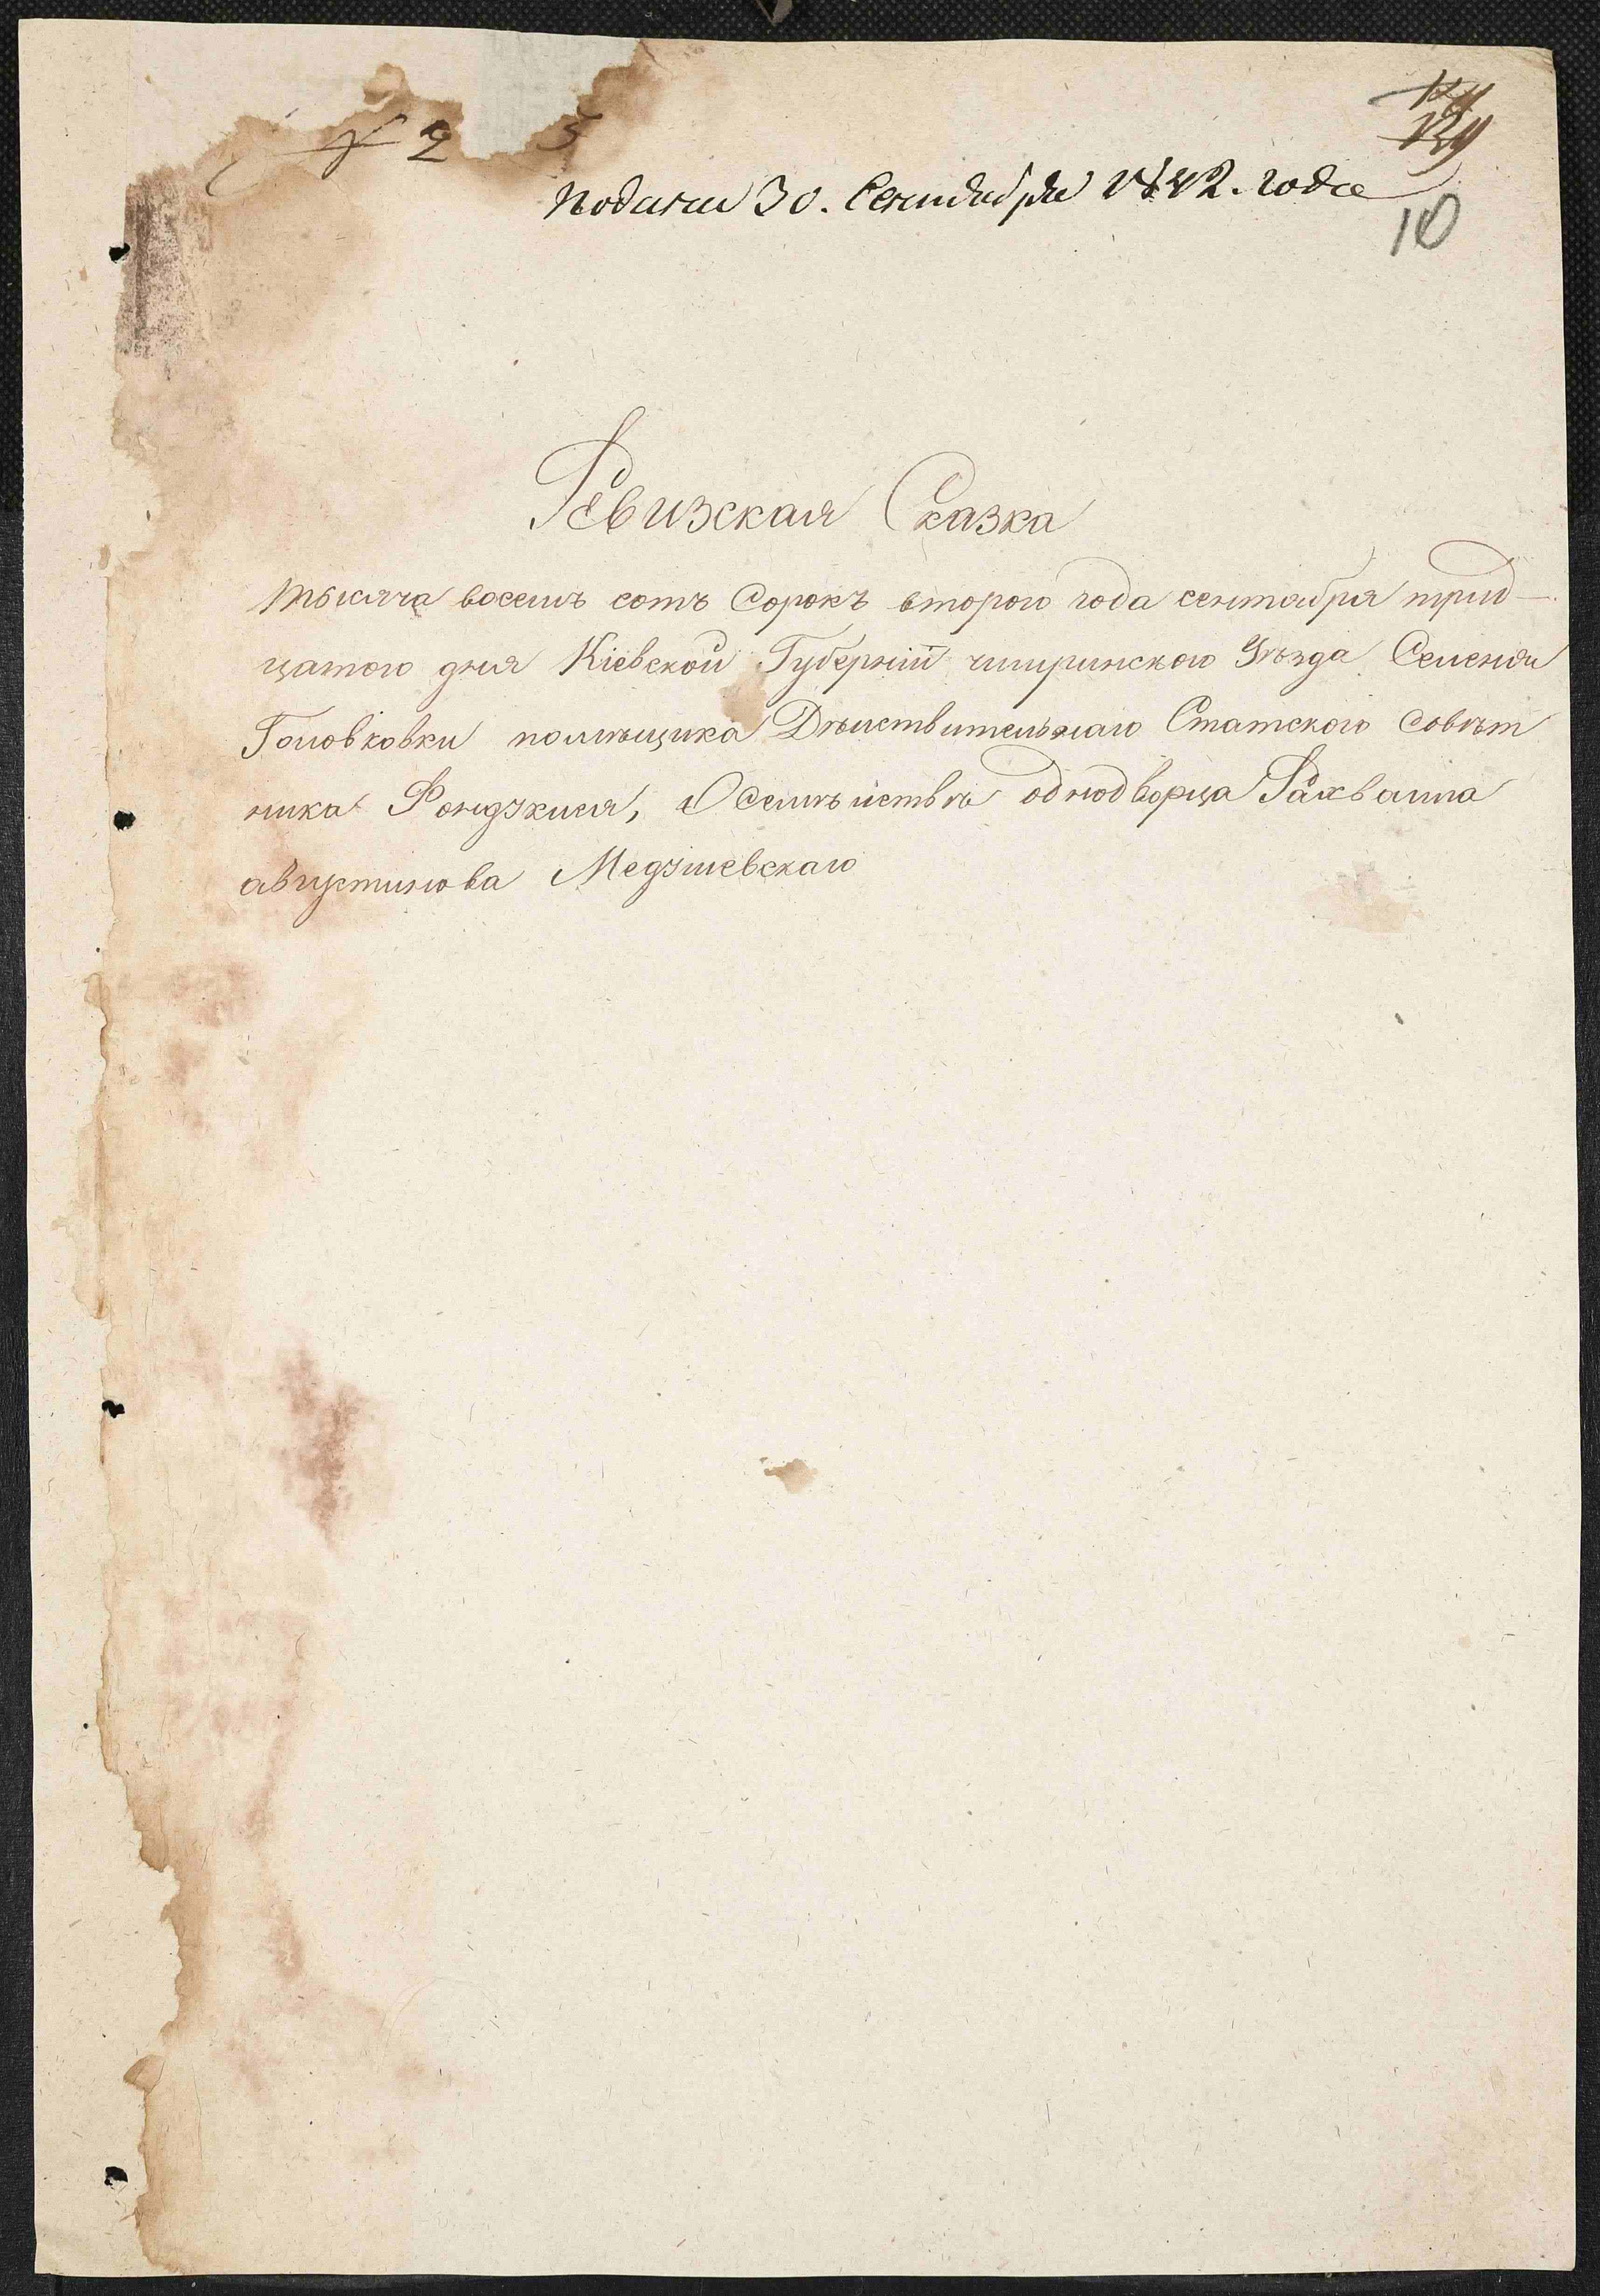 2
подана 30. Сентября 1842. года
10
Ревизская Сказка
тысяча восемъ сотъ Сорокъ второго года сентября трид-
цатого дня Кіевской Губерніи чигринского Уѣзда Селенія
Головковки помѣщика Дѣиствительнаго Статского Совѣт
ника Фондукиея, О Семѣиствѣ однодворца
августинова